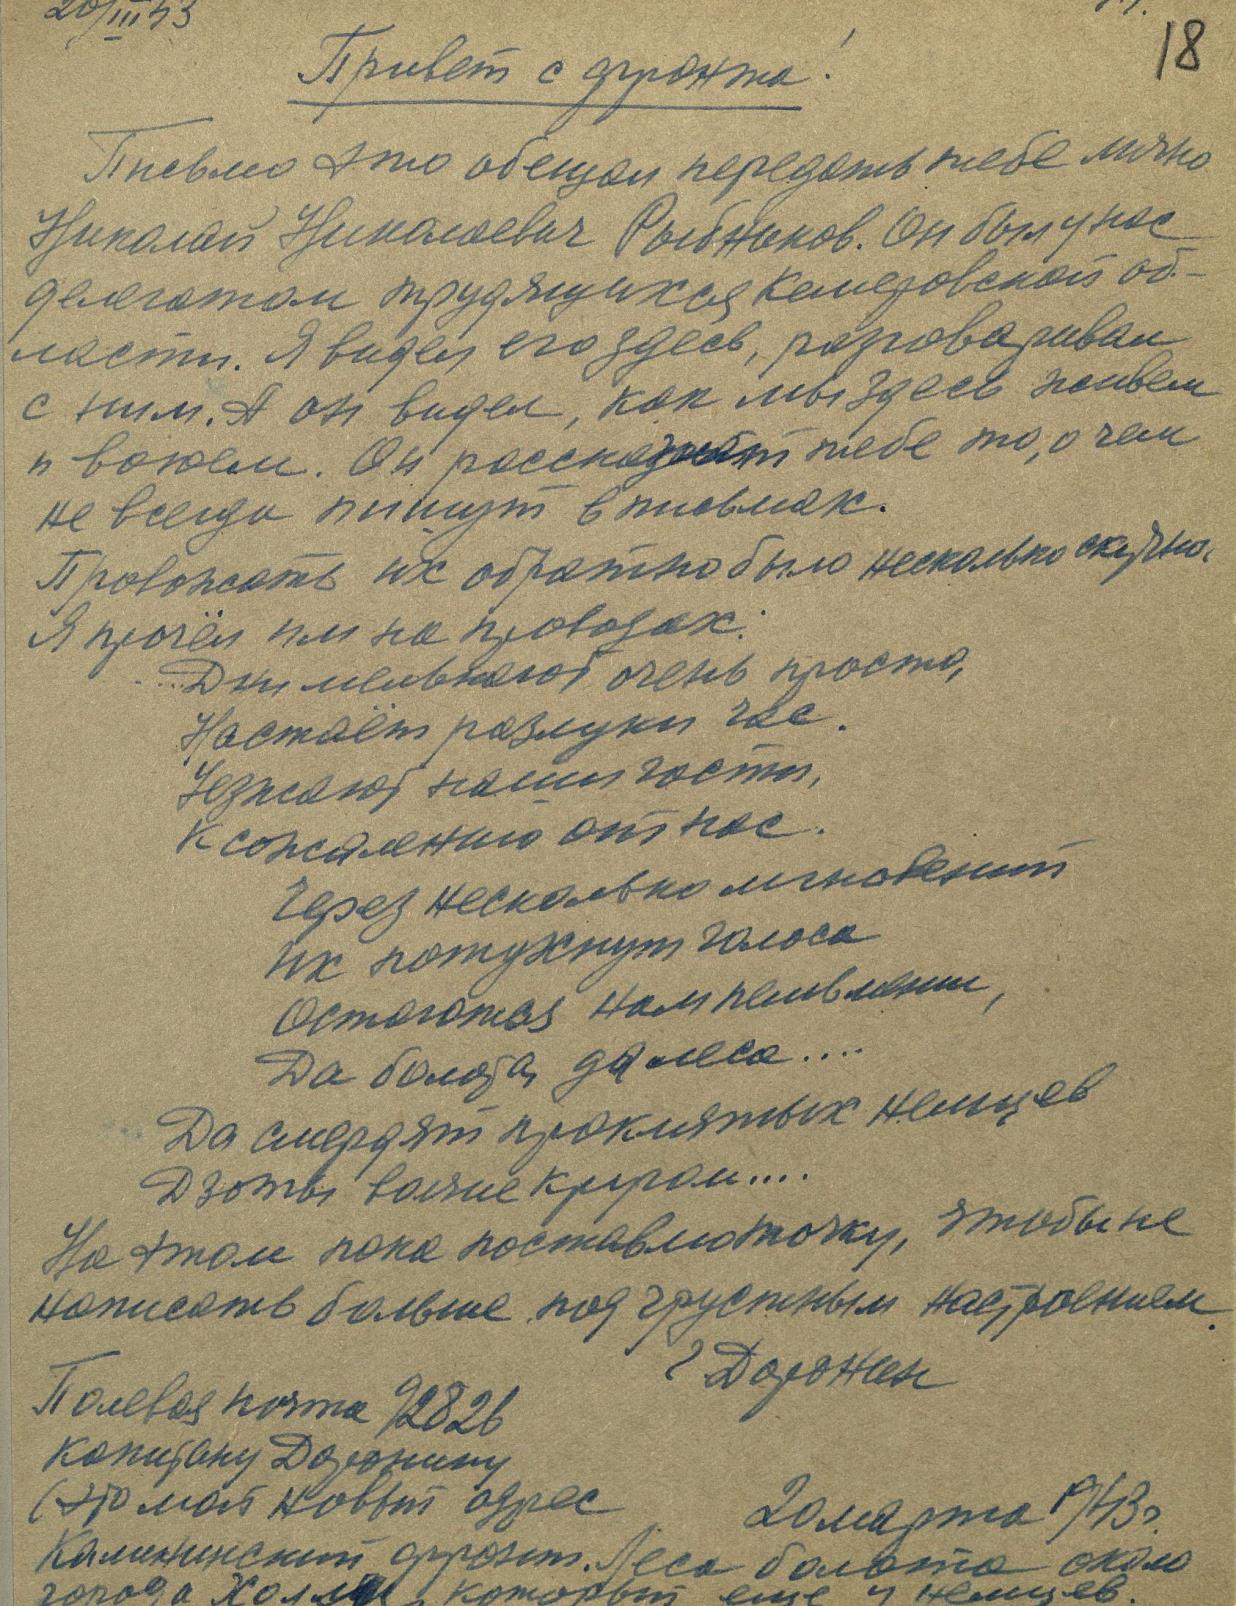 20/III 43
18
Привет с фронта!
Письмо это обещал передать тебе лично
Николай Николаевич Рыбников. Он был у нас
делегатом трудящихся Кемеровской об-
ласти. Я видел его здесь, разговаривал
с ним. А он видел, как мы здесь живем
и воюем. Он расскажет тебе то, о чем
не всегда пишут в письмах.
Провожать их обратно было несколько скучно.
Я прочёл им на проводах:
...Дни мелькают очень просто,
Настаёт разлуки час.
Уезжают наши гости,
К сожалению от нас.
Через несколько мгновений
Их потухнут голоса
Остаются нам
Да болота, да леса....
Да смердят проклятых немцев
Дзоты волчие кругом....
На этом пока поставлю точку, чтобы не
написать больше под грустным настроением.
Полевая почта 92826
Капитану Доронину
(это мой новый адрес
20 марта 1943 г.
Калининский фронт. Леса болота около
города Холма, который еще у немцев.